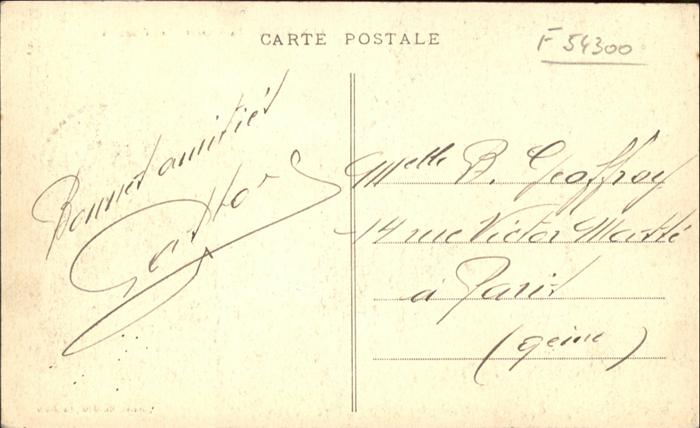 CARTE POSTALE
F 54300
Bonnes amitiés
Gaston
Melle B. Geoffroy
14 rue Victor Massé
à Paris
(9eime)